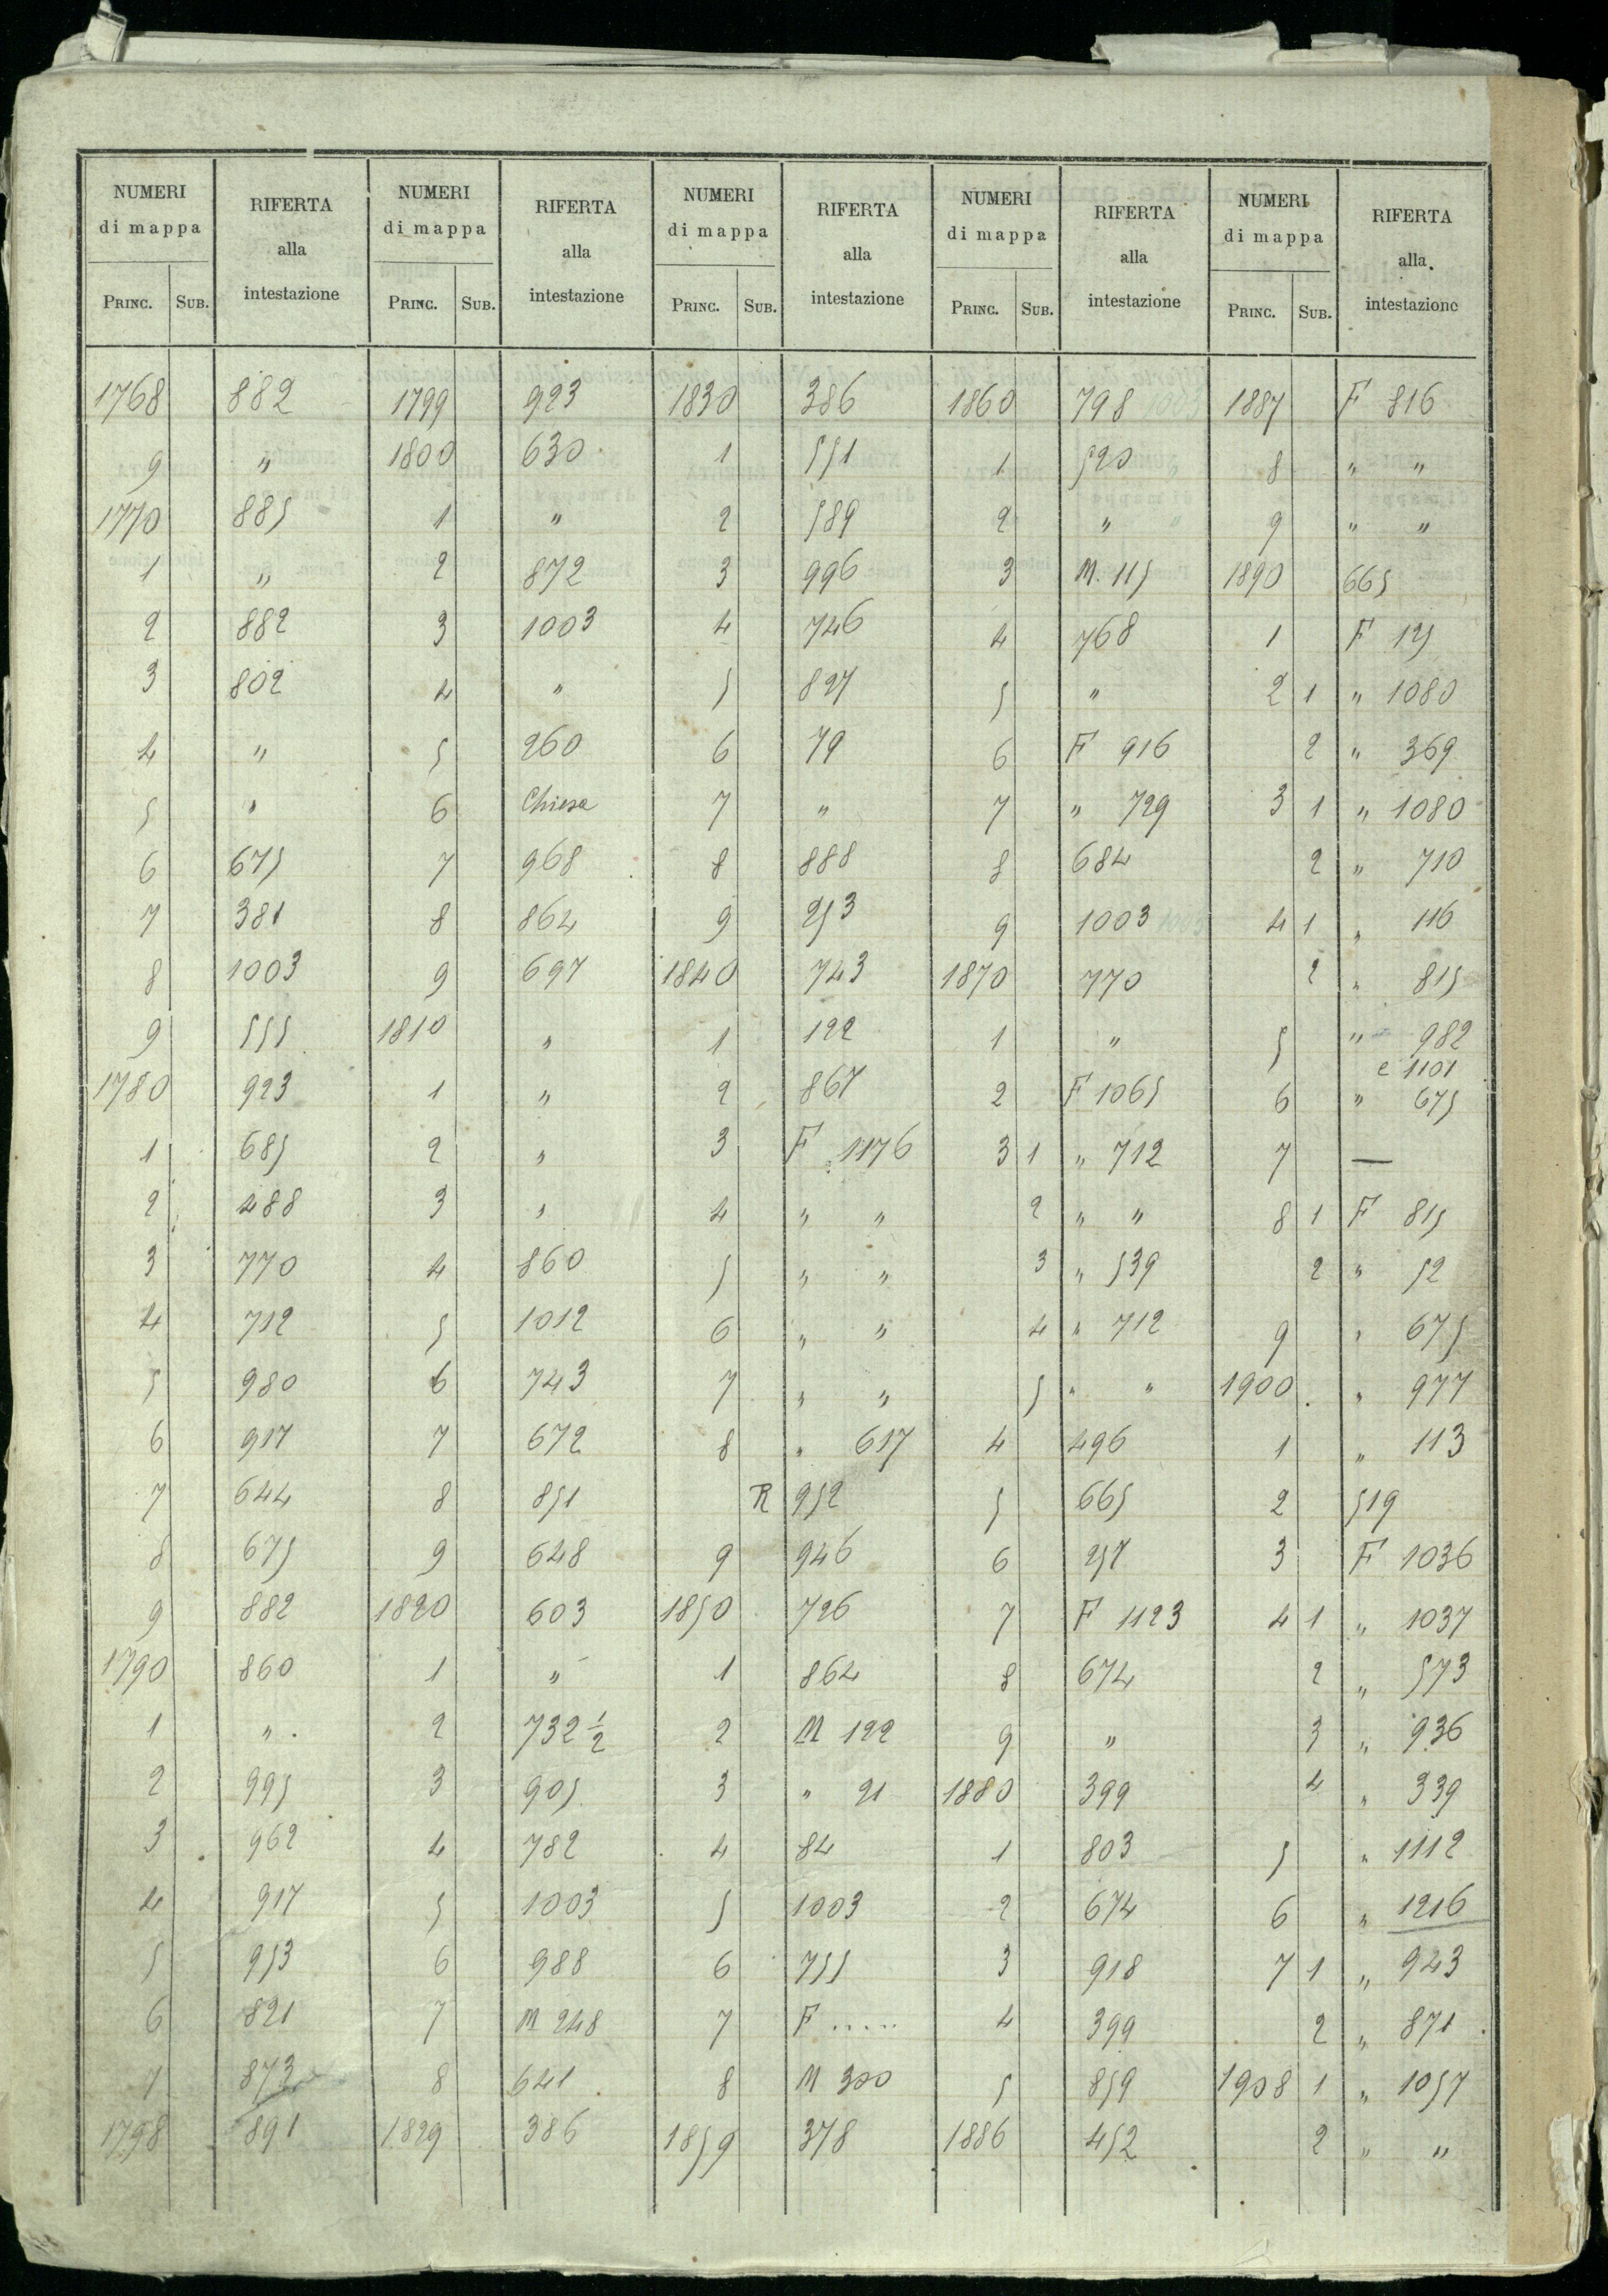 NUMERI di mappa | RIFERTA alla intestazione | NUMERI di mappa | RIFERTA alla intestazione | NUMERI di mappa | RIFERTA alla intestazione | NUMERI di mappa | RIFERTA alla intestazione | NUMERI di mappa | RIFERTA alla intestazione
PRINC. | SUB. | PRINC. | SUB. | PRINC. | SUB. | PRINC. | SUB. | PRINC. | SUB.
1768 882 1799 923 1830 386 1860 798 1887 F 816
9 " 1800 630 1 551 1 520 8 " "
1770 885 1 " 2 589 2 " 9 " "
1 " 2 872 3 996 3 M. 115 1890 665
2 882 3 1003 4 746 4 768 1 F 125
3 802 4 " 5 827 5 " 2 1 " 1080
4 " 5 260 6 79 6 F 916 2 " 369
5 " 6 Chiesa 7 " 7 " 729 3 1 " 1080
6 675 7 968 8 888 8 684 2 " 710
7 381 8 864 9 253 9 1003 4 1 " 116
8 1003 9 697 1840 743 1870 770 2 " 815
9 555 1810 " 1 122 1 " 5 " 982
e 1101
1780 923 1 " 2 867 2 F 1065 6 " 675
1 685 2 " 3 F 1176 3 1 " 712 7 —
2 488 3 " 4 " " 2 " " 8 1 F 815
3 770 4 860 5 " " 3 " 539 2 " 52
4 712 5 1012 6 " " 4 " 712 9 " 675
5 980 6 743 7 " " 5 " " 1900 " 977
6 917 7 672 8 " 617 4 496 1 " 113
7 644 8 851 R 952 5 665 2 519
8 675 9 648 9 946 6 257 3 F 1036
9 882 1820 603 1850 726 7 F 1123 4 1 " 1037
1790 860 1 " 1 864 8 674 2 " 573
1 " 2 732 1/2 2 M 122 9 " 3 " 936
2 995 3 905 3 " 21 1880 399 4 " 339
3 962 4 782 4 84 1 803 5 " 1112
4 917 5 1003 5 1003 2 674 6 " 1216
5 953 6 988 6 755 3 918 7 1 " 943
6 821 7 M 248 7 F ..... 4 399 2 " 871
7 873 8 641 8 M 300 5 859 1908 1 " 1057
1798 891 1829 386 1859 378 1886 452 2 " "